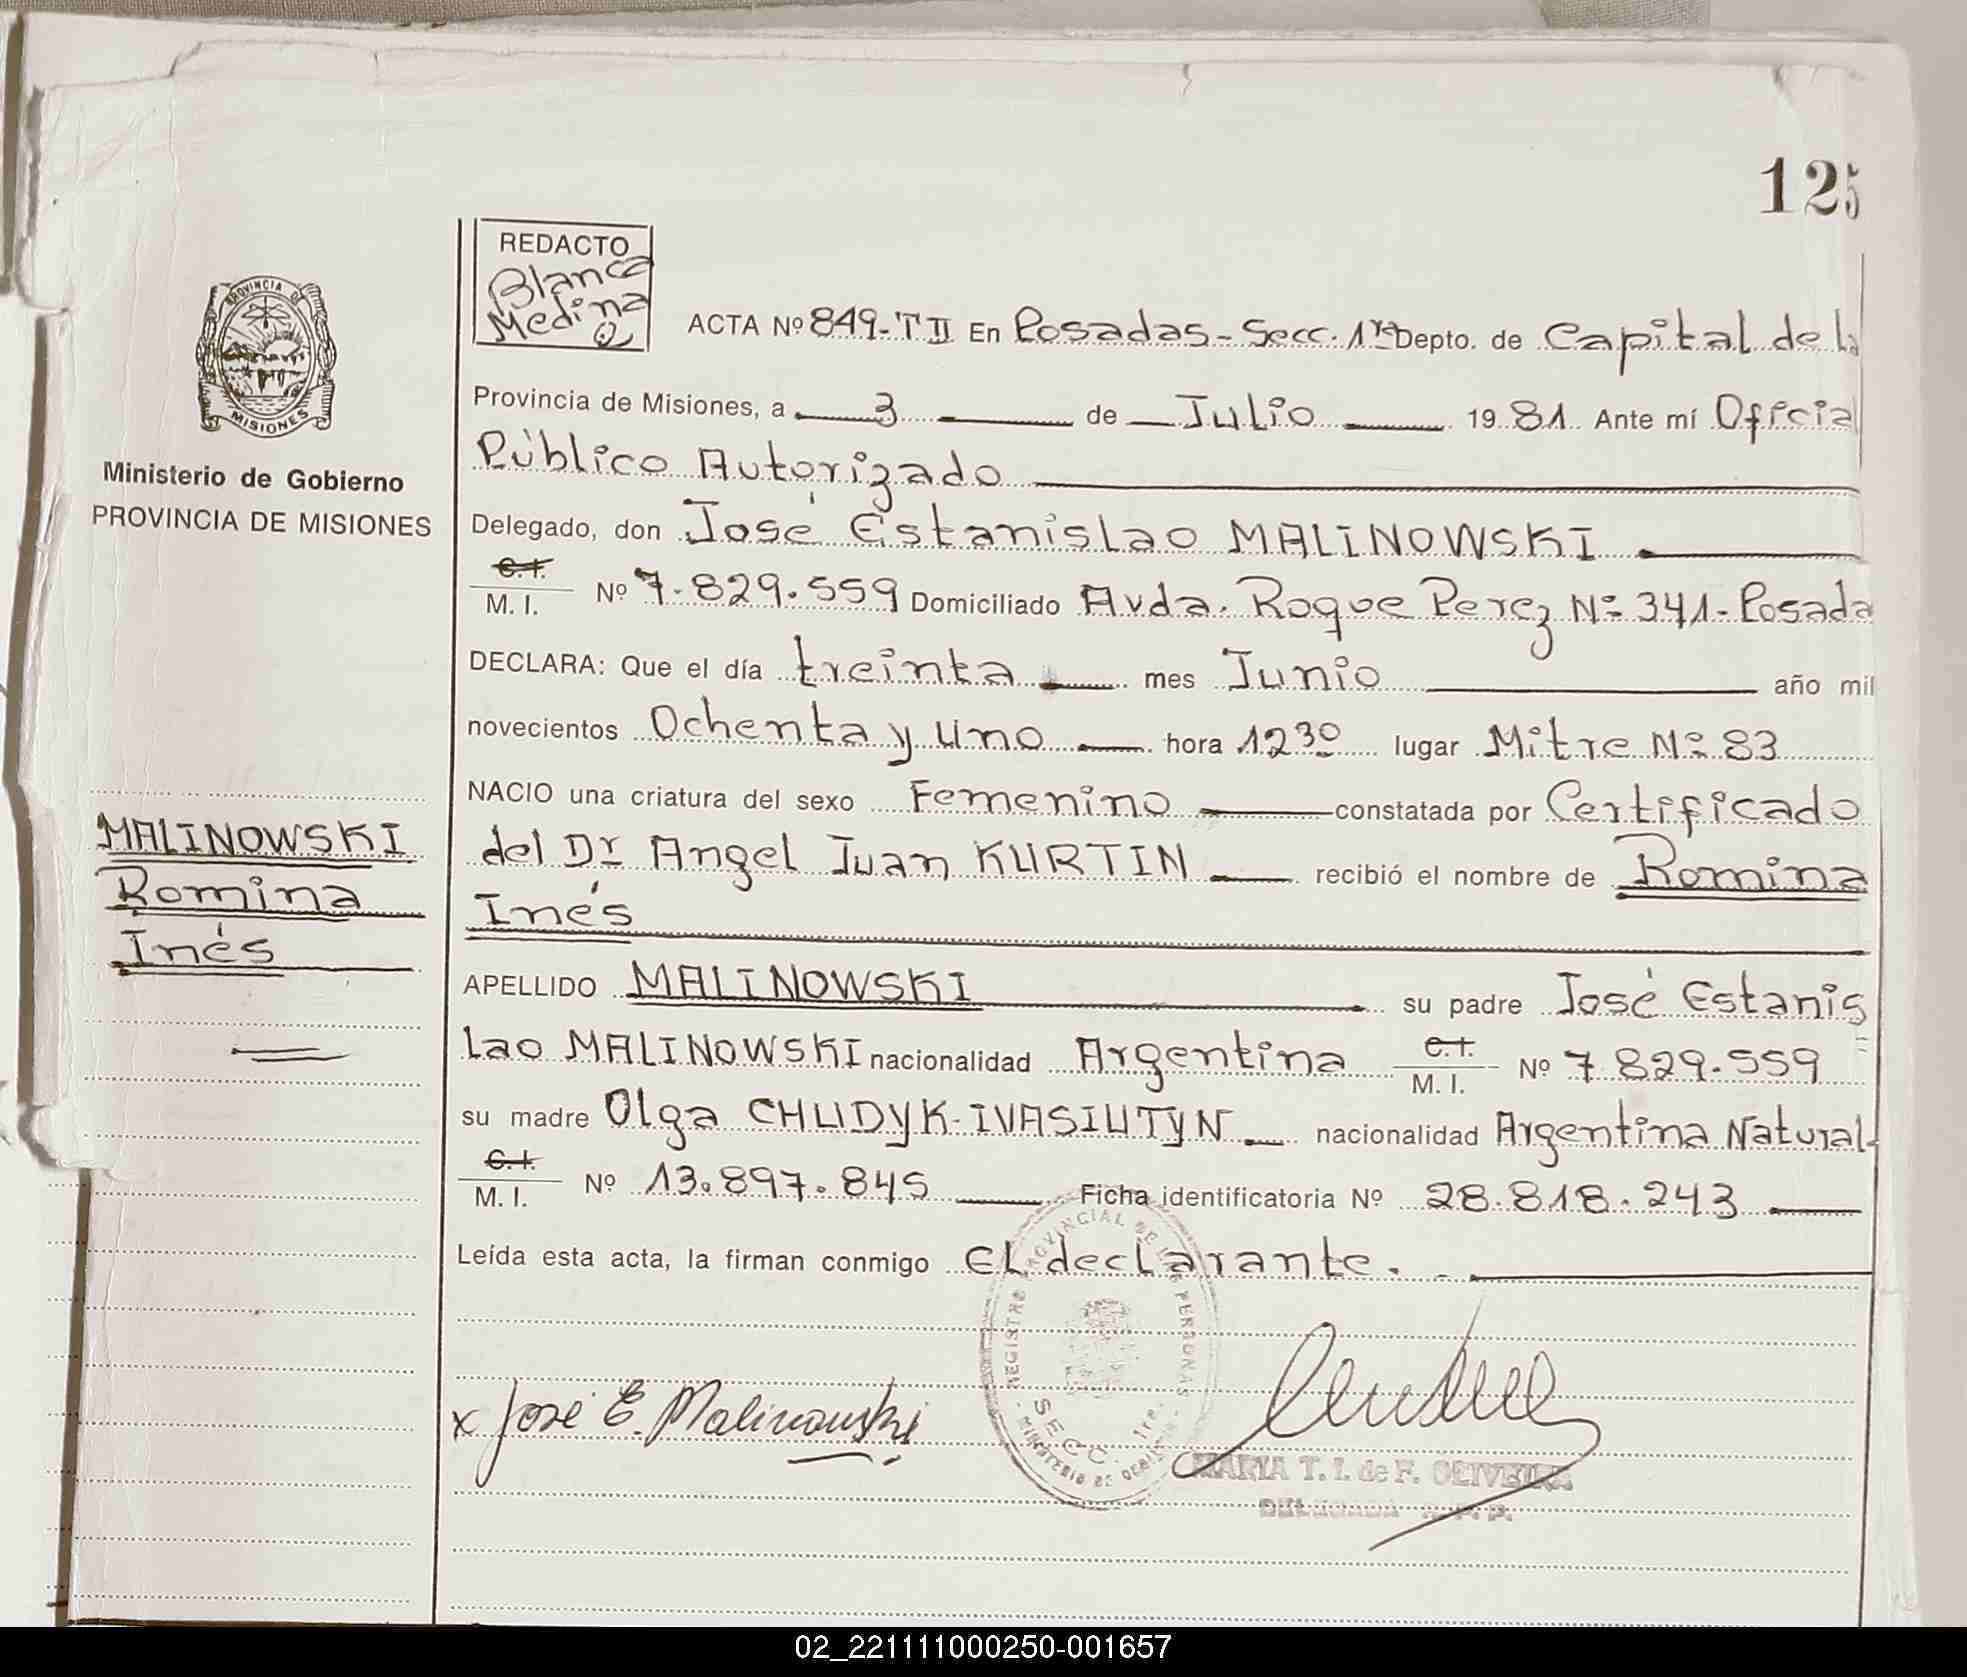 125
REDACTO
Blanca
Medina
PROVINCIA DE
MISIONES
Ministerio de Gobierno
PROVINCIA DE MISIONES
ACTA Nº 849-T II En Posadas-Secc. 1ra Depto. de Capital de la
Provincia de Misiones, a 3 de Julio 1981 Ante mí Oficial
Público Autorizado
Delegado, don José Estanislao MALINOWSKI
C.I.
M. I. Nº 7.829.559 Domiciliado Avda. Roque Perez Nº 341-Posada
DECLARA: Que el día treinta mes Junio año mil
novecientos Ochenta y uno hora 12 30 lugar Mitre Nº 83
NACIO una criatura del sexo Femenino constatada por Certificado
del Dr Angel Juan KURTIN recibió el nombre de Romina
Inés
MALINOWSKI
Romina
Inés
APELLIDO MALINOWSKI su padre José Estanis
lao MALINOWSKI nacionalidad Argentina C.I. M. I. Nº 7.829.559
su madre Olga CHUDYK-IVASIUTYN nacionalidad Argentina Natural-
C.I.
M. I. Nº 13.897.845 Ficha identificatoria Nº 28.818.243
Leída esta acta, la firman conmigo El declarante.
x José E. Malinowski
REGISTRO PROVINCIAL DE LAS PERSONAS
SECC. 1ra.
MINISTERIO DE GOBIERNO
MARIA T. I. de F. OLIVEIRA
DELEGADA
02_221111000250-001657